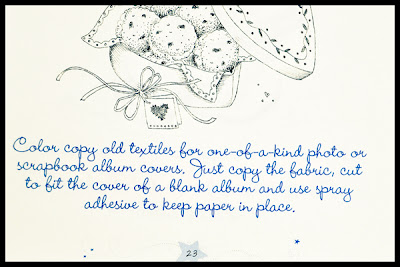 Color copy old textiles for one-of-a-kind photo or
scrapbook album covers. Just copy the fabric, cut
to fit the cover of a blank album and use spray
adhesive to keep paper in place.
23